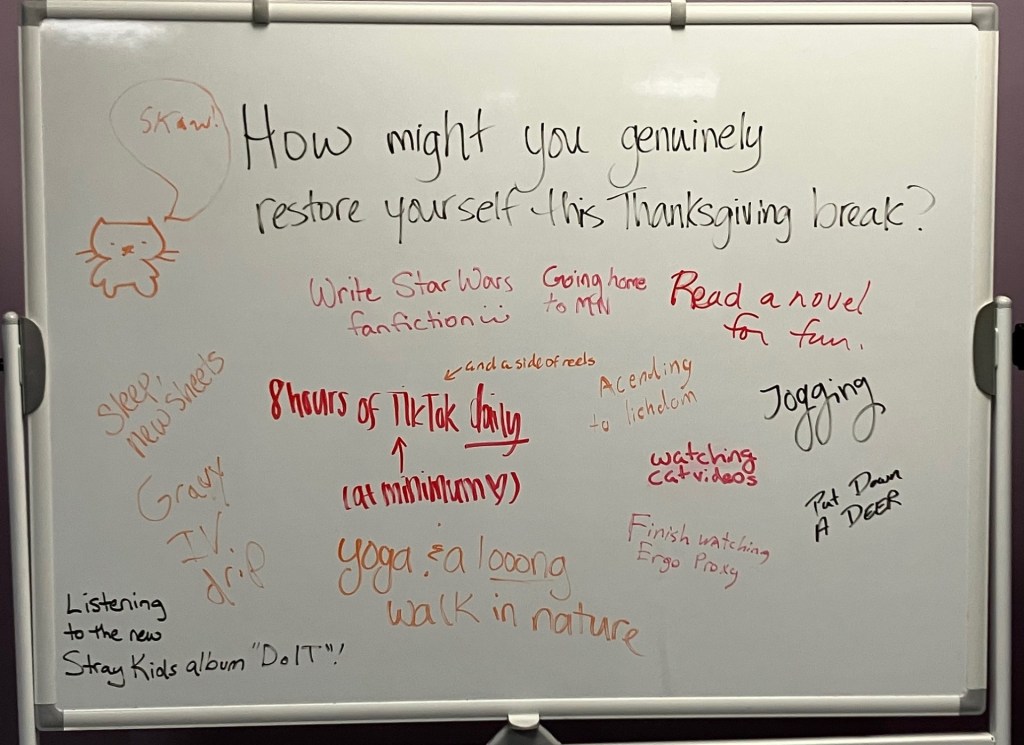 SKAW!
How might you genuinely
restore yourself this Thanksgiving break?
Write Star Wars
fanfiction
Going home
to MN
Read a novel
for fun.
and a side of reels
8 hours of TikTok daily
(at minimum)
Acending
to lichdom
Jogging
Sleep,
new sheets
watching
cat videos
Put Down
A DEER
Gravy
I.V.
drip
Finish watching
Ergo Proxy
yoga & a looong
walk in nature
Listening
to the new
Stray Kids album "Do IT"!